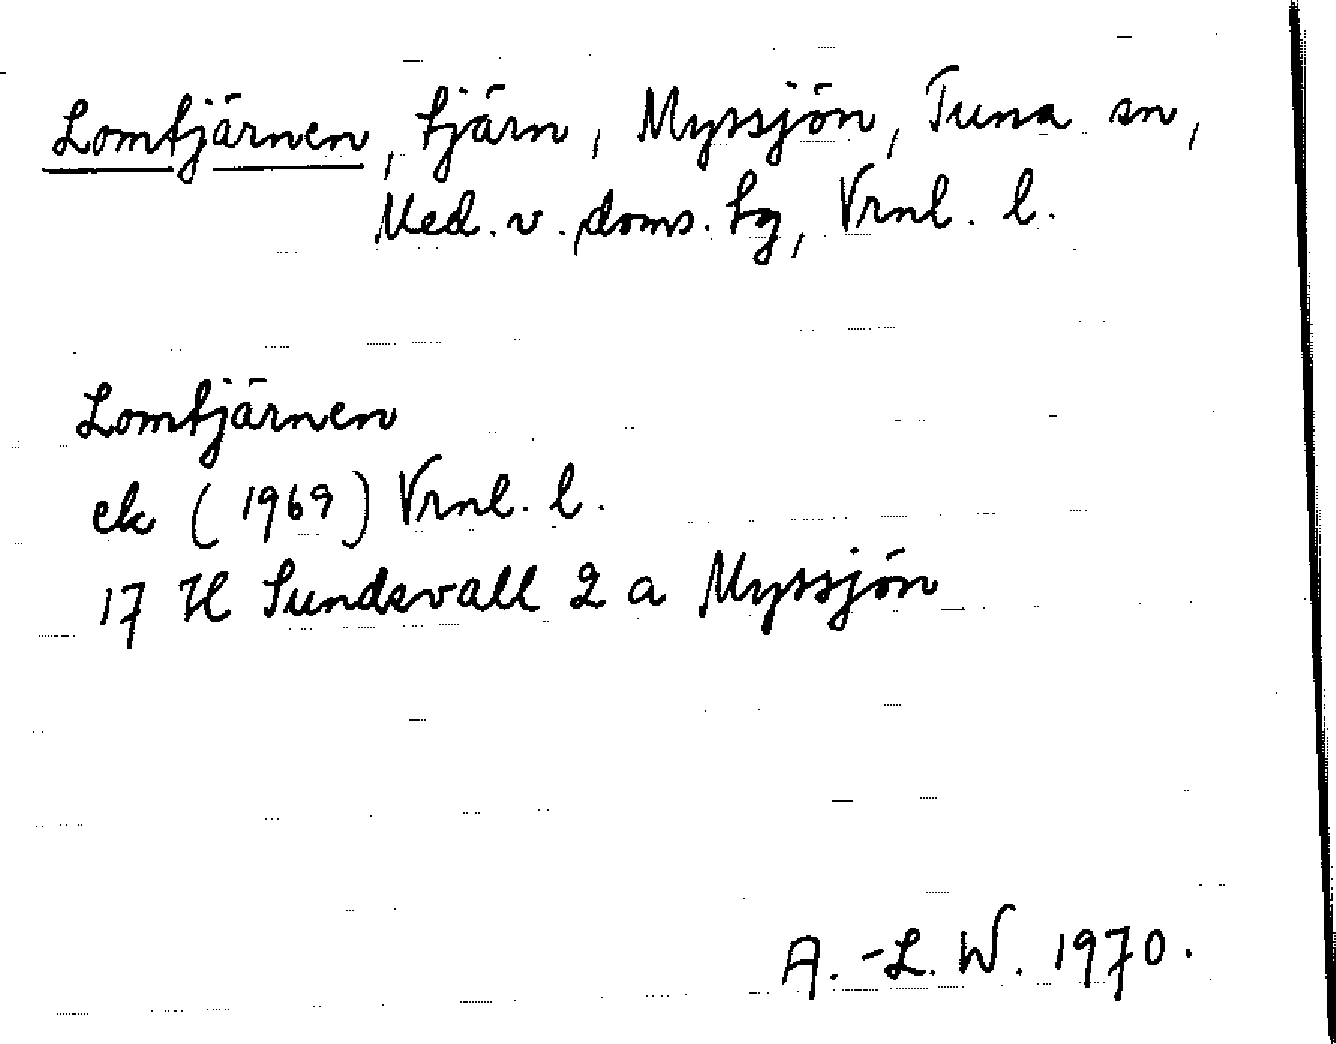 Lomtjärnen, tjärn, Myssjön, Tuna sn,
Med. v. doms. tg, Vrnl. l.
Lomtjärnen
ek (1969) Vrnl. l.
17 H Sundsvall 2 a Myssjön
A.-L. W. 1970.